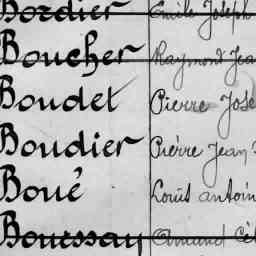 Bordier Emile Joseph
Boucher Raymond Jea
Boudet Pierre Jose
Boudier Pierre Jean
Boué Louis antoin
Boussay Armand Cél